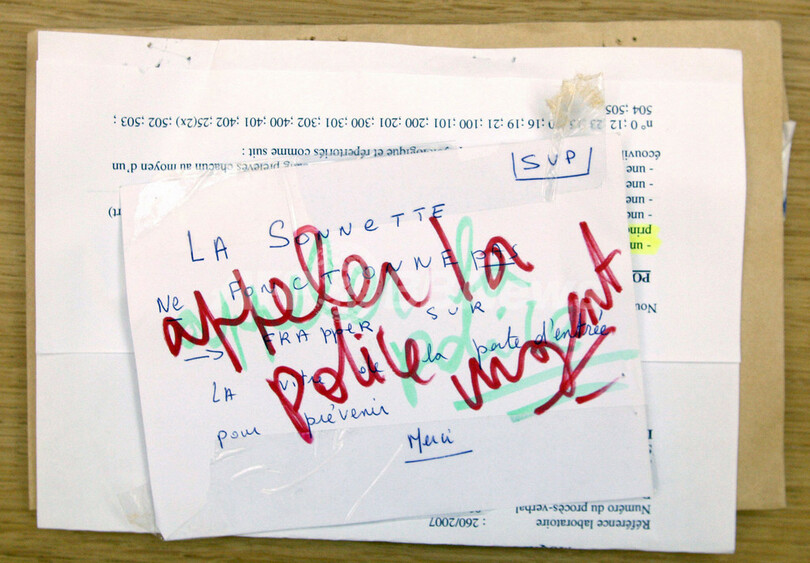 SVP
LA SONNETTE
NE FONCTIONNE PAS
→ FRAPPER SUR
LA vitre de la porte d'entrée
pour prévenir
Merci
appeler la
police urgent
appeler la
police
504 ;505
n° 0 ; 12 ; 16 ; 19 ; 21 ; 100 ; 101 ; 200 ; 201 ; 300 ; 301 ; 302 ; 400 ; 401 ; 402 ; 25(2x) ; 502 ; 503 ;
ologique et répertoriés comme suit :
prélevés chacun au moyen d'un
écouvi
- une
- une
- une
princ
- un
PO
Nou
Numéro du procès-verbal
Référence laboratoire : 260/2007